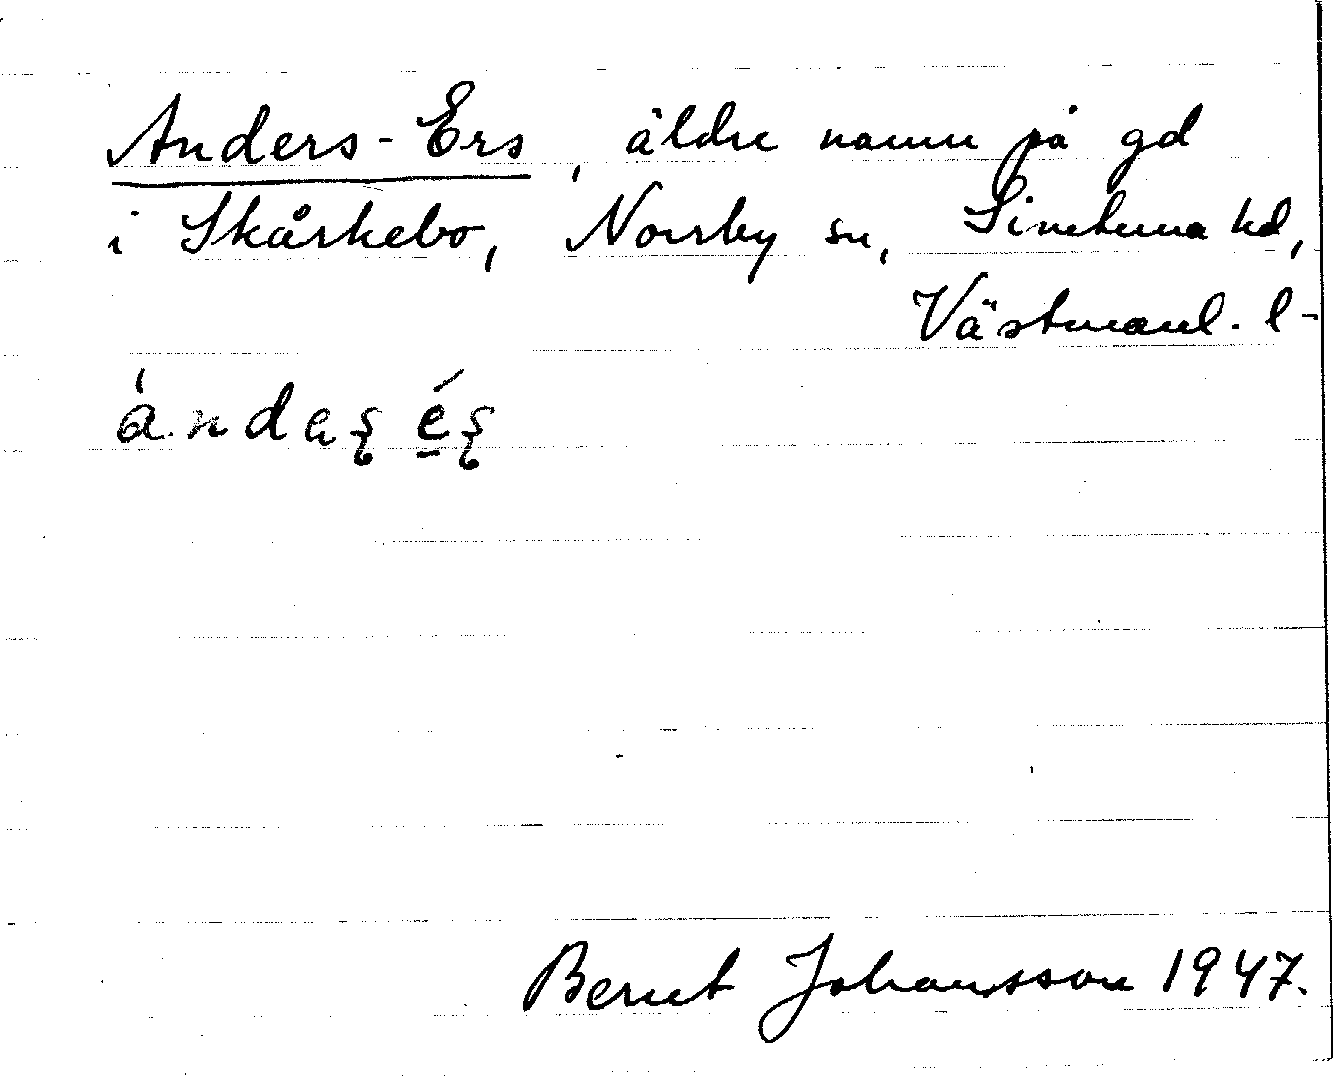 Anders-Ers, äldre namn på gd
i Skårkebo, Norrby sn, Simtuna hd,
Västmanl. l-
Bernt Johansson 1947.